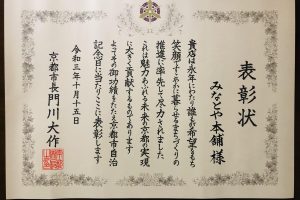 表彰状
みなとや本舗 様
貴店は永年にわたり誰もが希望をもち
笑顔ですこやかに暮らせるまちづくりの
推進に率先して尽力されました
これは魅力あふれる未来の京都の実現
に大きく貢献するものであります
よってその御功績をたたえ京都市自治
記念日に当たりここに表彰します
令和三年十月十五日
京都市長 門川大作